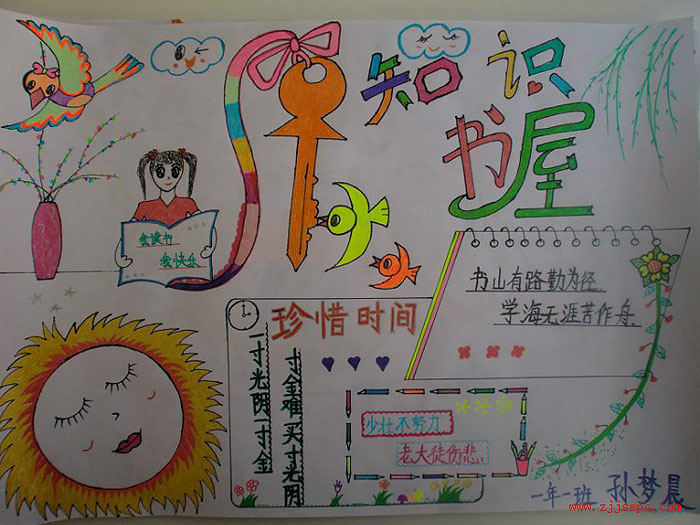 知识
书屋
我读书
我快乐
书山有路勤为径
学海无涯苦作舟
珍惜时间
一寸光阴一寸金
寸金难买寸光阴
少壮不努力
老大徒伤悲
一年一班 孙梦晨
www.zjjsepc.com